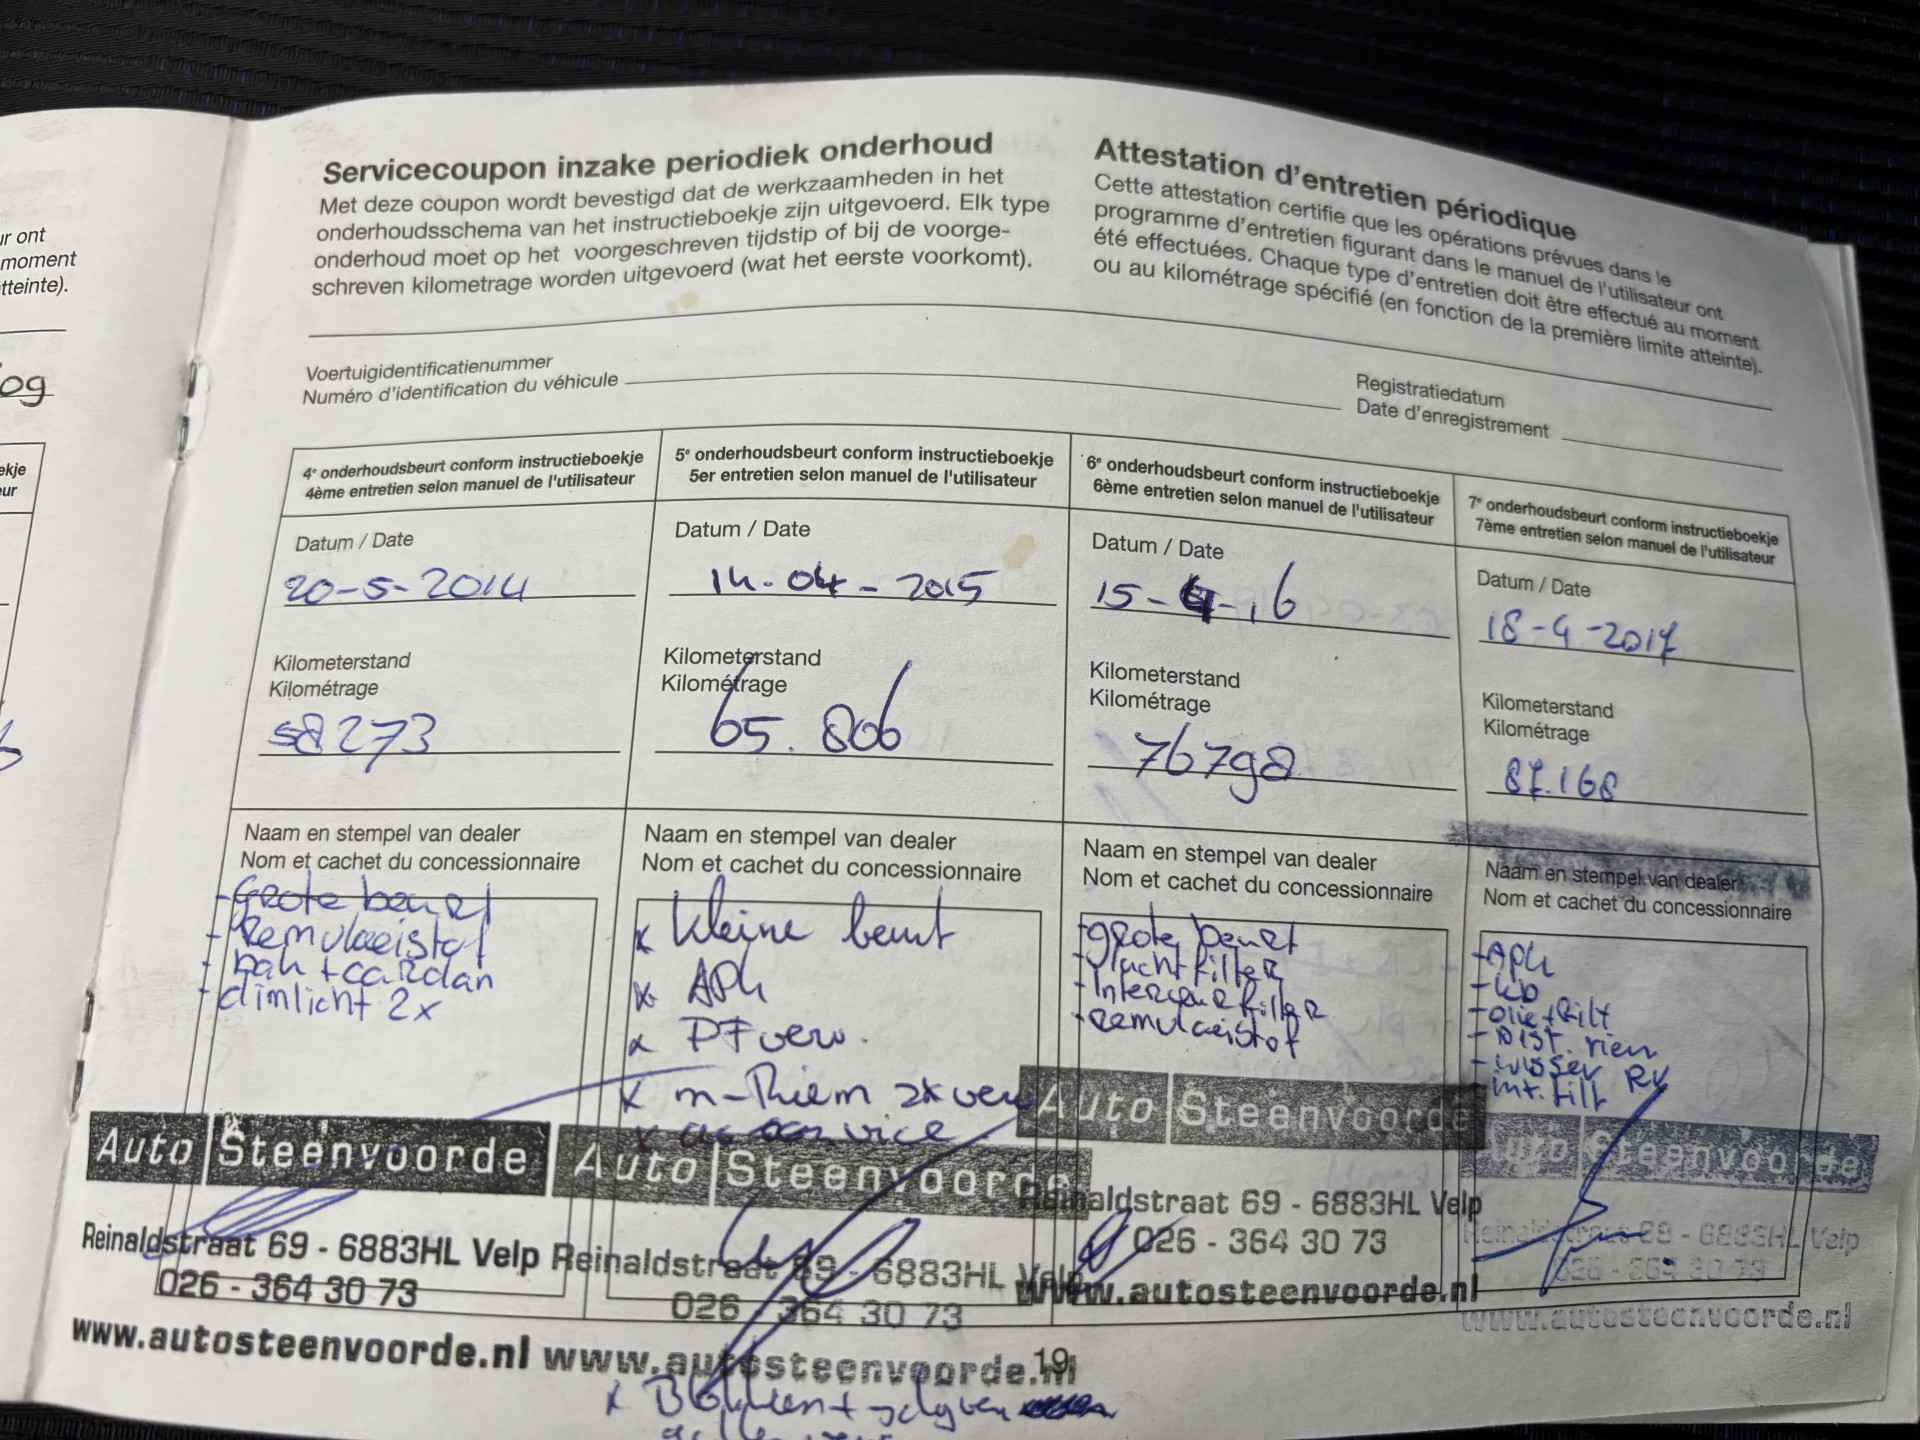 ur ont
moment
tteinte).
og
ekje
eur
Servicecoupon inzake periodiek onderhoud
Met deze coupon wordt bevestigd dat de werkzaamheden in het
onderhoudsschema van het instructieboekje zijn uitgevoerd. Elk type
onderhoud moet op het voorgeschreven tijdstip of bij de voorge-
schreven kilometrage worden uitgevoerd (wat het eerste voorkomt).
Attestation d'entretien périodique
Cette attestation certifie que les opérations prévues dans le
programme d'entretien figurant dans le manuel de l'utilisateur ont
été effectuées. Chaque type d'entretien doit être effectué au moment
ou au kilométrage spécifié (en fonction de la première limite atteinte).
Voertuigidentificatienummer
Numéro d'identification du véhicule
Registratiedatum
Date d'enregistrement
4e onderhoudsbeurt conform instructieboekje
4ème entretien selon manuel de l'utilisateur
Datum / Date
20-5-2014
Kilometerstand
Kilométrage
58273
Naam en stempel van dealer
Nom et cachet du concessionnaire
- Grote beurt
- Remvloeistof
- bak + cardan
- dimlicht 2x
Auto Steenvoorde
Reinaldstraat 69 - 6883HL Velp
026 - 364 30 73
www.autosteenvoorde.nl
5e onderhoudsbeurt conform instructieboekje
5er entretien selon manuel de l'utilisateur
Datum / Date
14-04-2015
Kilometerstand
Kilométrage
65.806
Naam en stempel van dealer
Nom et cachet du concessionnaire
x Kleine beurt
x APk
x verv.
x m-Riem 2x verv
x
Auto Steenvoorde
Reinaldstraat 69 - 6883HL Velp
026 - 364 30 73
www.autosteenvoorde.nl
x
6e onderhoudsbeurt conform instructieboekje
6ème entretien selon manuel de l'utilisateur
Datum / Date
15-4-16
Kilometerstand
Kilométrage
76798
Naam en stempel van dealer
Nom et cachet du concessionnaire
- grote beurt
- luchtfilter
- Interieurfilter
- Remvloeistof
Auto Steenvoorde
Reinaldstraat 69 - 6883HL Velp
026 - 364 30 73
www.autosteenvoorde.nl
7e onderhoudsbeurt conform instructieboekje
7ème entretien selon manuel de l'utilisateur
Datum / Date
18-4-2017
Kilometerstand
Kilométrage
87.168
Naam en stempel van dealer
Nom et cachet du concessionnaire
- APk
- kb
- olie + filt
- Dist. riem
- wisser RV
- int. filt
Auto Steenvoorde
Reinaldstraat 69 - 6883HL Velp
026 - 364 30 73
www.autosteenvoorde.nl
19